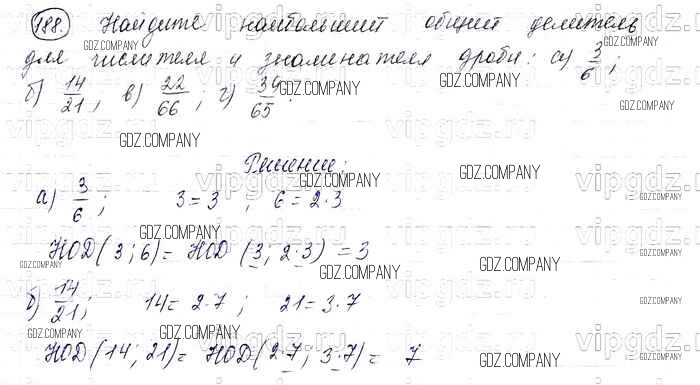 188. Найдите наибольший общий делитель
для числителя и знаменателя дроби: а) 3/6;
б) 14/21; в) 22/66; г) 34/65.
Решение:
а) 3/6; 3=3; 6=2·3
НОД(3;6)= НОД (3; 2·3) =3
б) 14/21; 14=2·7; 21=3·7
НОД(14;21)= НОД(2·7; 3·7)= 7
GDZ.COMPANY
vipgdz.ru